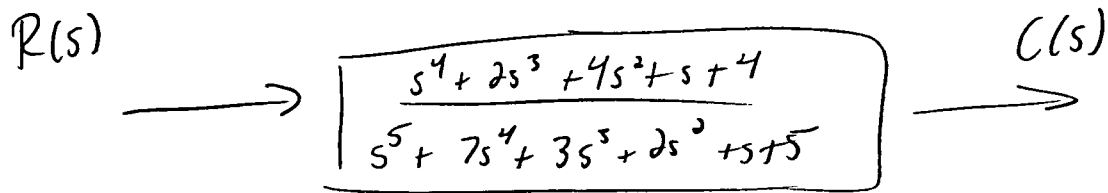 R(s)
C(s)
s⁴ + 2s³ + 4s² + s + 4
s⁵ + 7s⁴ + 3s³ + 2s² + s + 5